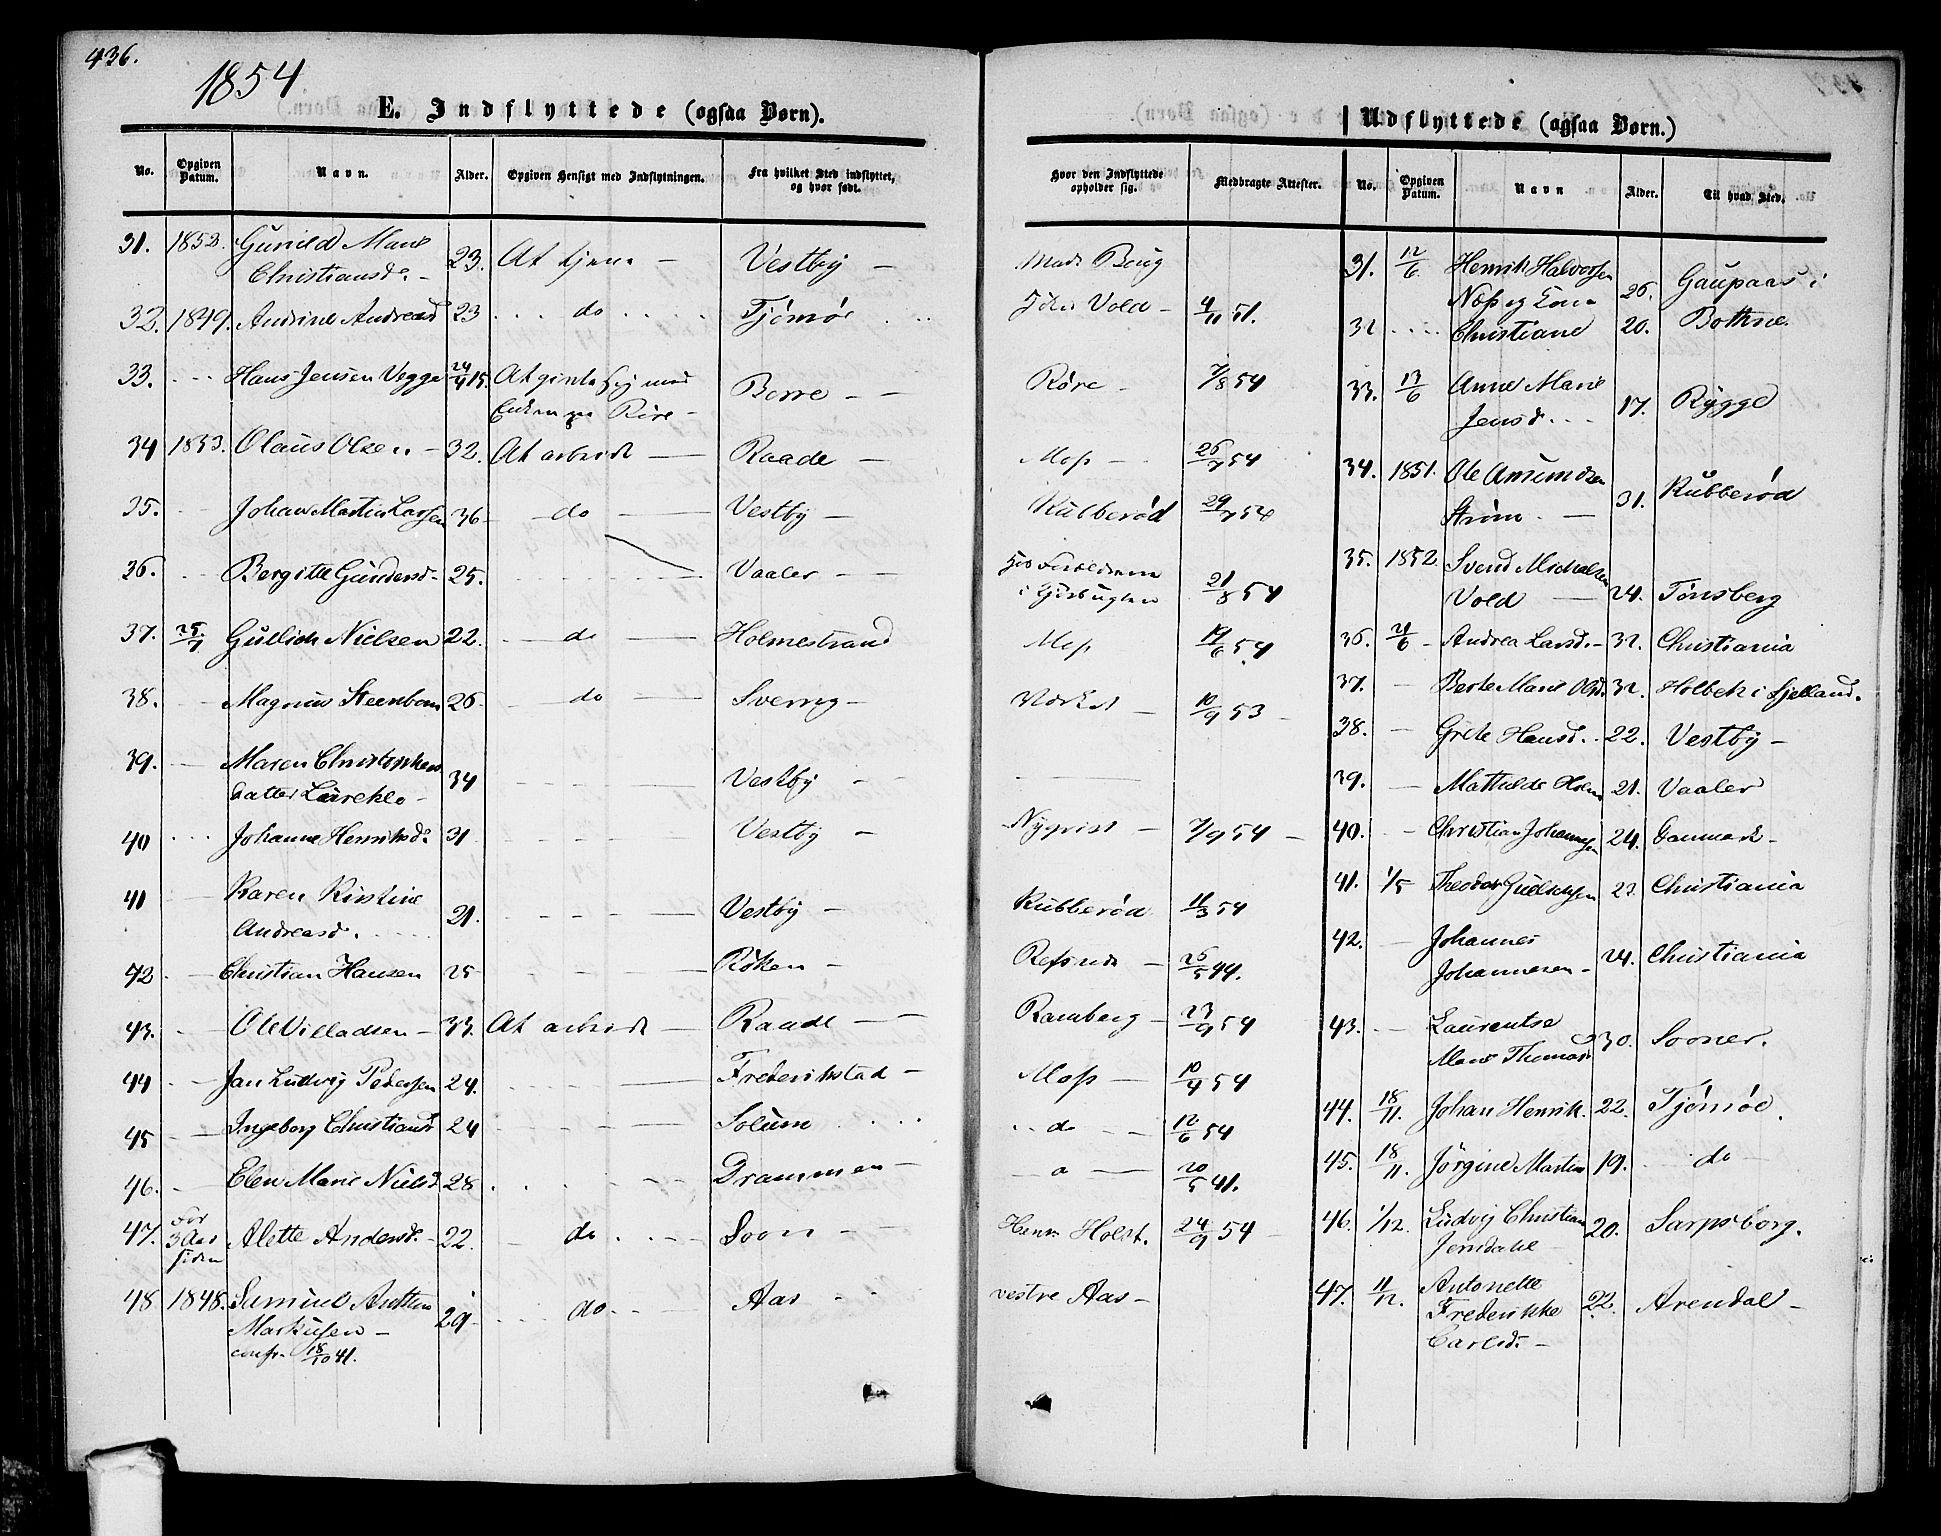 436.
1854
E. Indflyttede (ogsaa Børn).
No. Opgiven Datum. Navn. Alder. Opgiven Hensigt med Indflytningen. Fra hvilket Sted indflyttet, og hvor født.
31. 1852. Gunild Marie 23. At tjene - Vestby -
Christiansd. -
32. 1849. Andrine Andreasd 23 do Tjömöe
33. Hans Jensen Vegge 24/4 15. At gifte sig med Borre - -
Enken paa Röre -
34 1853. Olaus Olsen - 32. At arbeide - Raade -
35. Johan Martin Larsen 36 - do - Vestby -
36. Bergitte Gundersd - 25. Vaaler - -
37. 25/7 Gullich Nielsen 22. - do - Holmestrand
38. Magnus Steenbom 26 - do - Sverrig -
39. Maren Christophers 34 Vestby - -
datter Lürehlo -
40 Johanne Henriksd. 31 Vestby -
41 Karen Kirstine 21. Vestby -
Andreasd.
42 Christian Hansen 25 Röken -
43. Ole Villadsen - 33. At arbeide - Raade - -
44 Jan Ludvig Pedersen 24. Frederikstad -
45 Ingeborg Christiansd 24 Solum
46. Elen Marie Nielsd 28 Drammen -
47. For 3 Aar siden Alette Andersd. - 22. - do Soon - -
48 1848. Samuel Anthon 29 - do - - Aas - -
Markusen -
conf. 18/10 41.
Hvor den Indflyttede opholder sig. Medbragte Attester.
Mads Boug
Vold - 4/11 51.
Röre - 7/8 54
Moss - 26/7 54
Kulberöd 29/7 54
hos Forældrene
i 21/8 54
Moss 19/6 54
Værket - 10/9 53 -
Nyqvist - 7/9 54 -
Kubberöd 11/3 54
Refsnes - 26/5 44.
Ramberg - 23/9 54
Moss - 10/4 54
do - 12/6 54
20/5 41.
Holst. 24/9 54 -
vestre Aas -
Udflyttede (ogsaa Børn.)
No. Opgiven Datum. Navn Alder. Til hvad Sted.
31. 12/6 Henrik Halvorsen 26. Gaupaas i
Næs og Kone
32 Christiane 20. Bothne
33. 13/6 Anne Marie 17. Rygge
Jensd.
34. 1851. Ole Amundsen 31. Kubberöd
Ström. -
35. 1852. Svend Michalsen
Vold - 24. Tönsberg
36. 21/6 - Andrea Larsd. - 32. Christiania
37. - Berte Marie Olsd. 32. Holbek i Sjelland.
38. - Grete Hansd. 22. Vestby -
39. - Mathilde Holm 21. Vaaler
40. - Christian Johannessen 24. Danmark -
41. 1/5 Theodor 23. Christiania
42. - Johannes 24. Christiania
Johannesen -
43. - Laurentse 30. Sooner.
Marie Thomasd
44. 18/11. Johan Henrik. 22. Tjömöe.
45. 18/11. Jörgine Martin 19. - do -
46. 1/12. Ludvig Christian 20. Sarpsborg.
Jensdahl
47. 11/12. Antonette 22. Arendal -
Frederikke
Carlsd. -